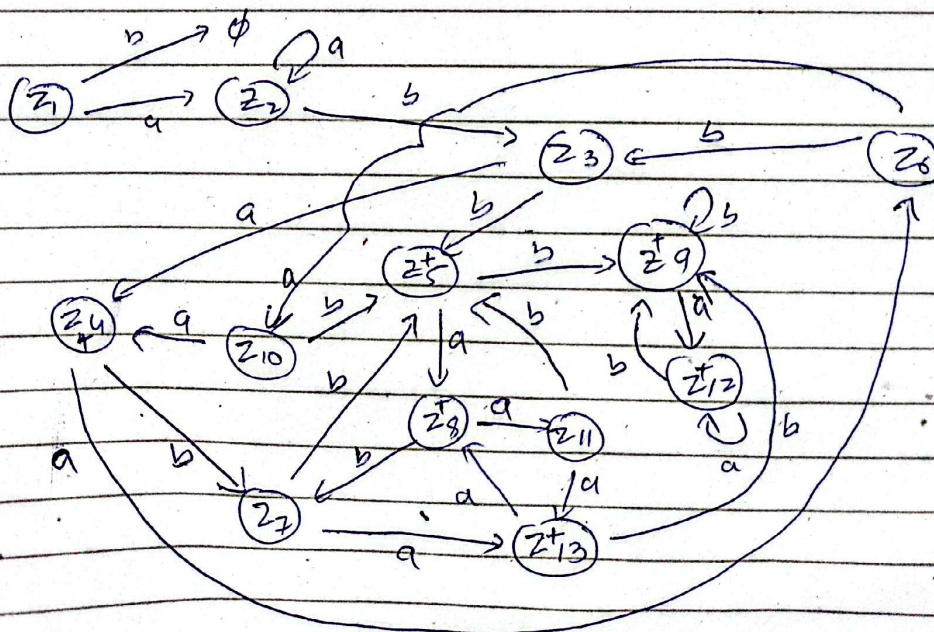 b φ a
Z1 a Z2 b
Z3 b Z6
a b
Z5+ b Z9+ b
a
Z4+ a Z10 b a b a
Z12+ b
b Z8+ a Z11 a
a b b a
Z7 a Z13+
a